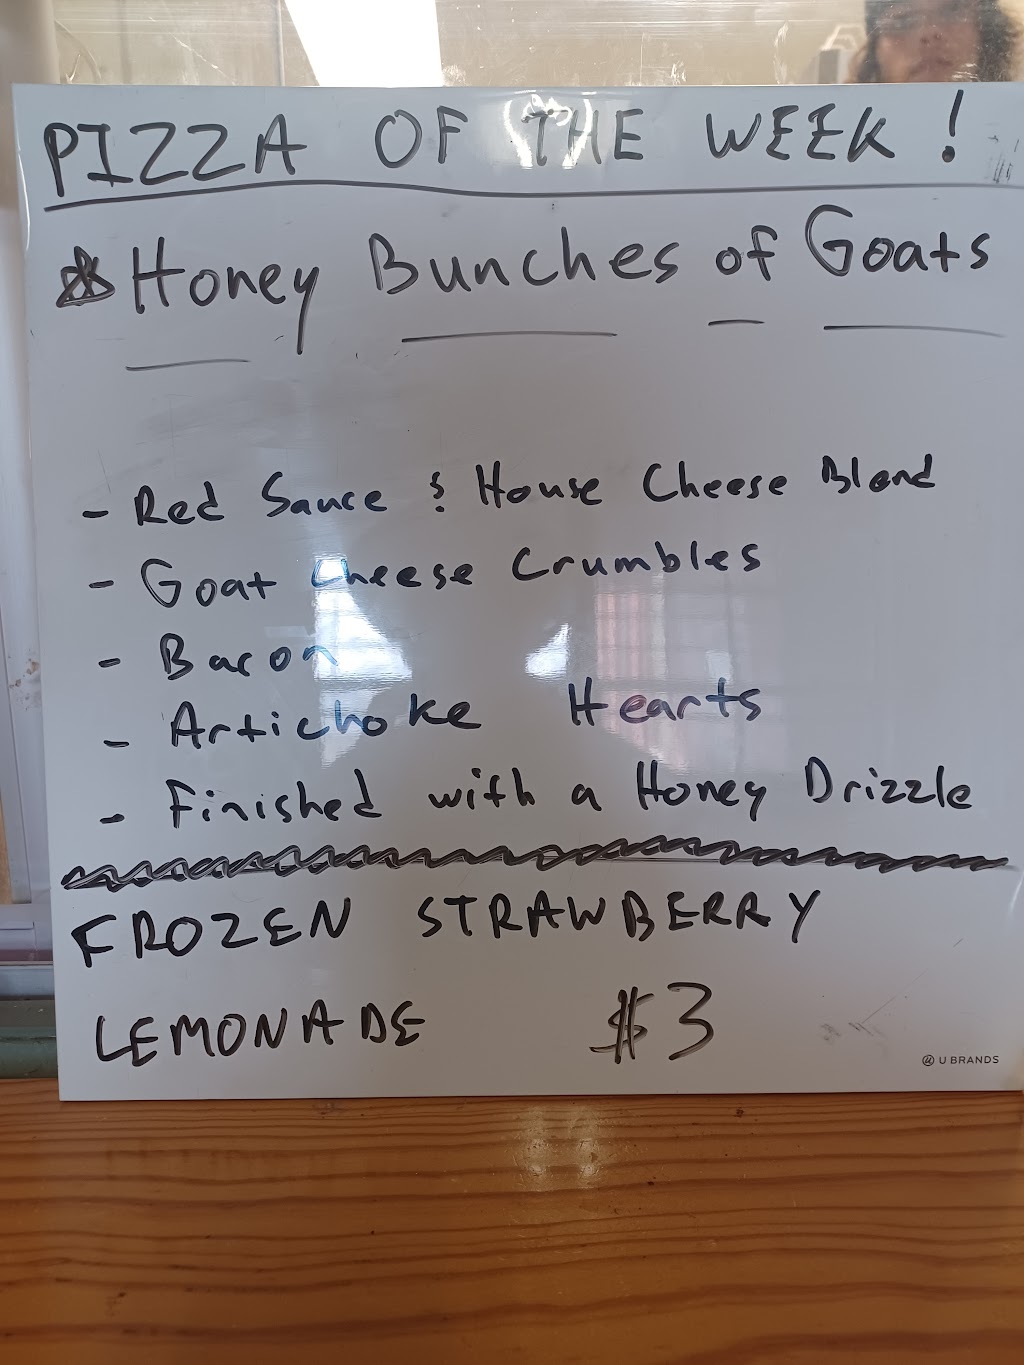 PIZZA OF THE WEEK!
Honey Bunches of Goats
- Red Sauce & House Cheese Blend
- Goat Cheese Crumbles
- Bacon
- Artichoke Hearts
- Finished with a Honey Drizzle
FROZEN STRAWBERRY
LEMONADE $3
U BRANDS